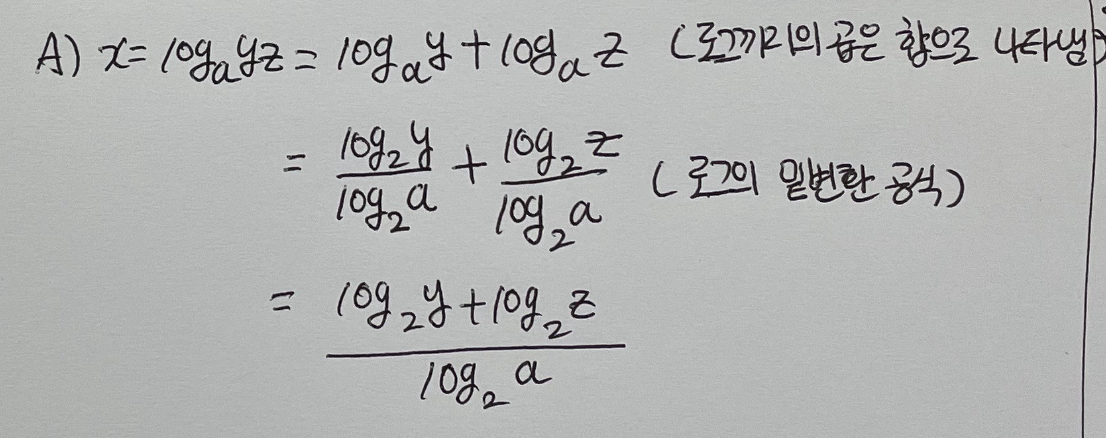 A) x = logₐyz = logₐy + logₐz (로그끼리의 곱은 합으로 나타냄)
= log₂y/log₂a + log₂z/log₂a (로그의 밑변환 공식)
= (log₂y + log₂z)/log₂a